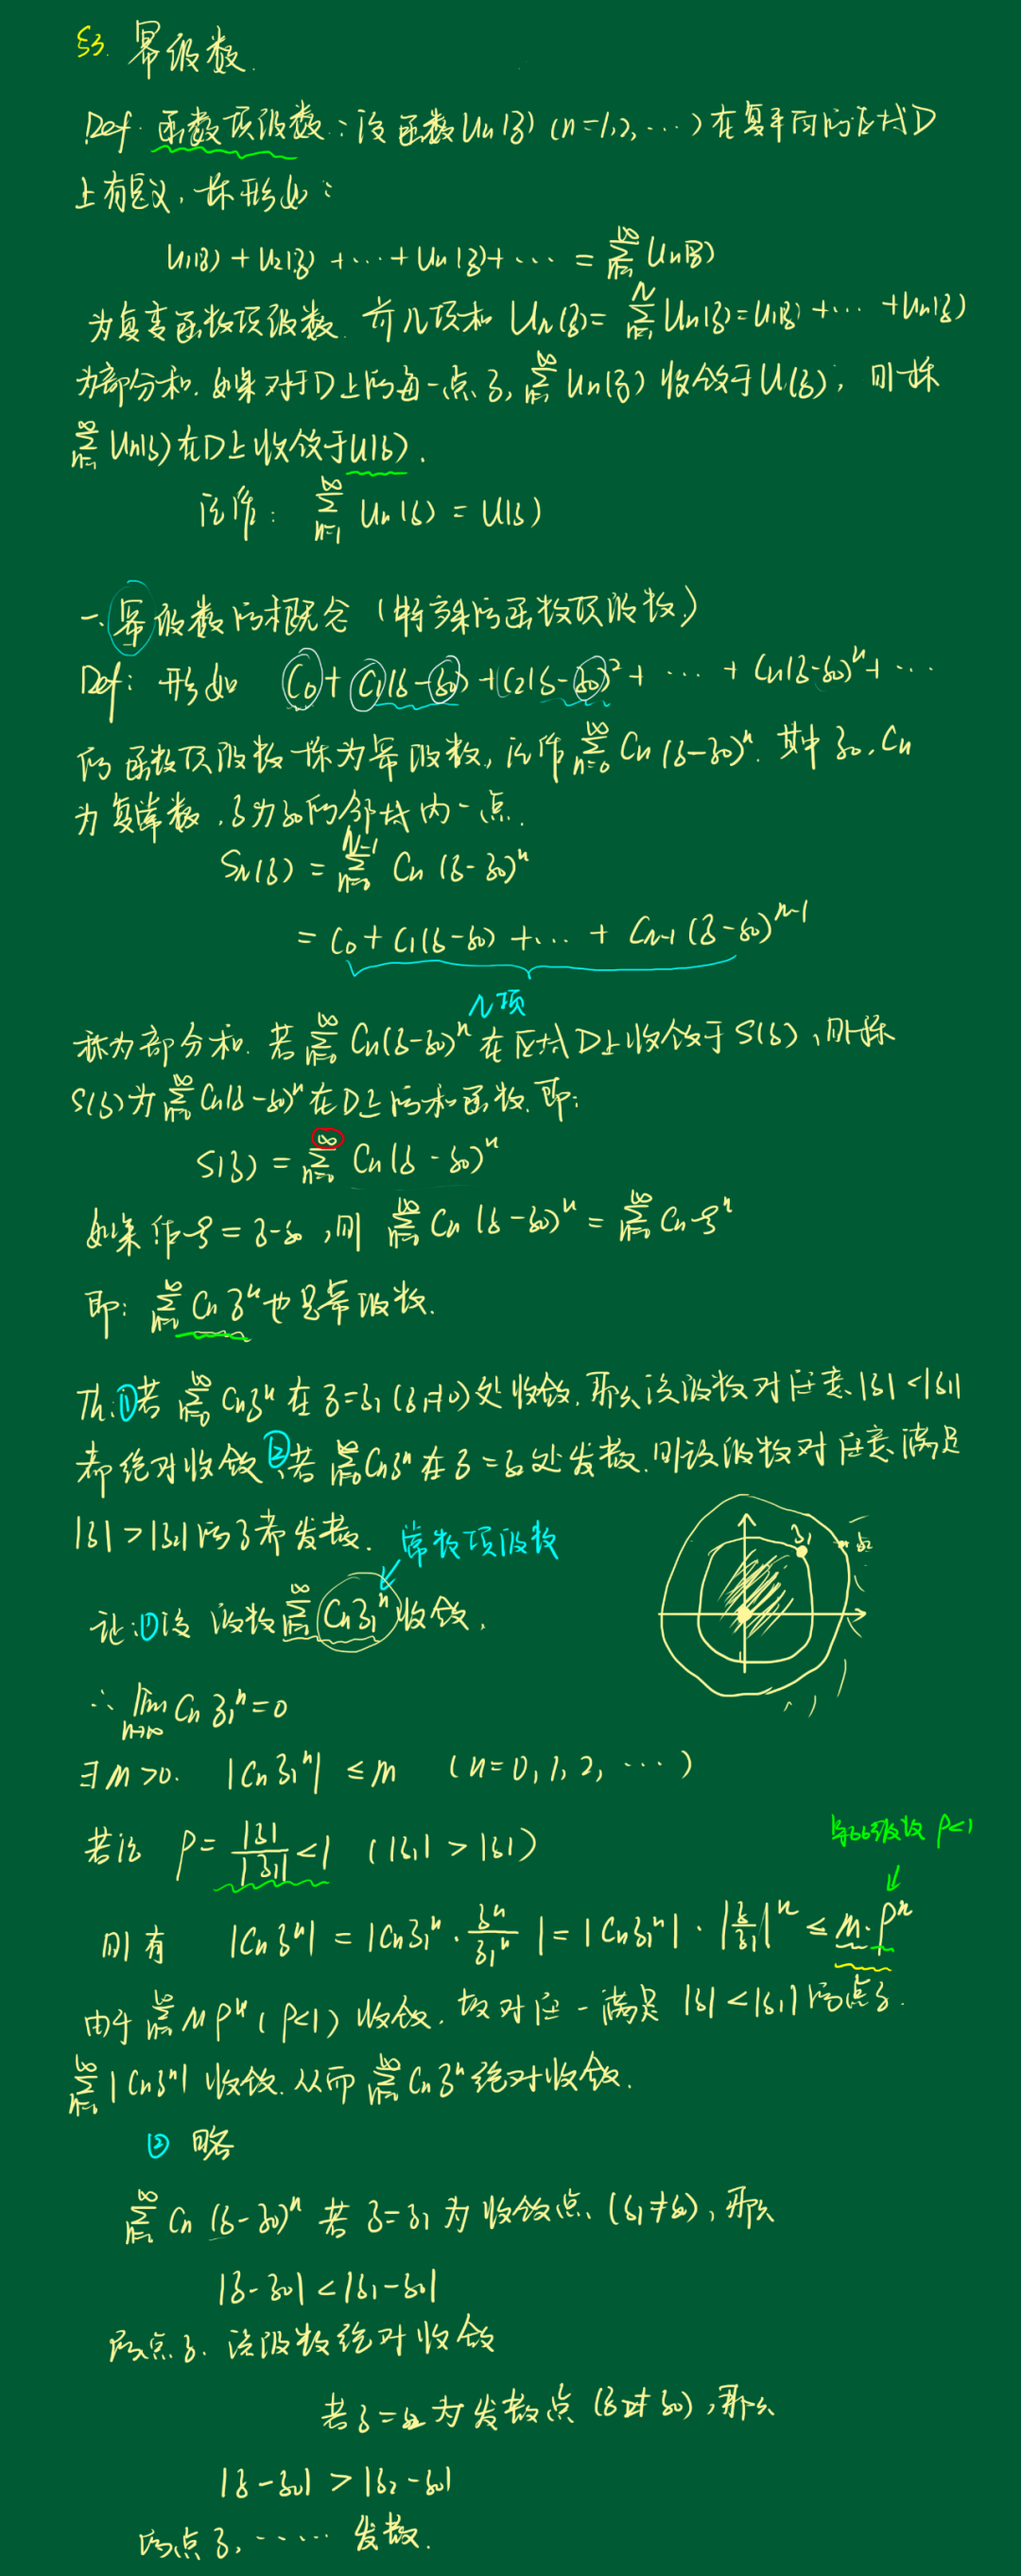 §3. 幂级数.
Def. 函数项级数：设函数Un(z) (n=1,2,…) 在复平面的区域D
上有定义，称形如：
U1(z) + U2(z) + … + Un(z) + … = ∑_{n=1}^∞ Un(z)
为复变函数项级数. 前N项和 UN(z) = ∑_{n=1}^N Un(z) = U1(z) + … + Un(z)
为部分和. 如果对于D上的每一点z, ∑_{n=1}^∞ Un(z) 收敛于U(z)，则称
∑_{n=1}^∞ Un(z) 在D上收敛于U(z).
记作：∑_{n=1}^∞ Un(z) = U(z)
一. 幂级数的概念（特殊的函数项级数）
Def：形如 C0 + C1(z-z0) + C2(z-z0)^2 + … + Cn(z-z0)^n + …
的函数项级数称为幂级数，记作 ∑_{n=0}^∞ Cn(z-z0)^n. 其中 z0, Cn
为复常数，z为z0的邻域内一点.
SN(z) = ∑_{n=0}^{N-1} Cn(z-z0)^n
= C0 + C1(z-z0) + … + C_{N-1}(z-z0)^{N-1}
N项
称为部分和. 若 ∑_{n=0}^∞ Cn(z-z0)^n 在区域D上收敛于S(z)，则称
S(z)为 ∑_{n=0}^∞ Cn(z-z0)^n 在D上的和函数. 即：
S(z) = ∑_{n=0}^∞ Cn(z-z0)^n
如果作 ζ = z-z0，则 ∑_{n=0}^∞ Cn(z-z0)^n = ∑_{n=0}^∞ Cn ζ^n
即：∑_{n=0}^∞ Cn z^n 也是幂级数.
Th: ①若 ∑_{n=0}^∞ Cn z^n 在 z=z1 (z1≠0) 处收敛. 那么该级数对任意 |z| < |z1|
都绝对收敛 ②若 ∑_{n=0}^∞ Cn z^n 在 z=z2 处发散. 则该级数对任意满足
|z| > |z2| 的z都发散.
常数项级数
z1
z2
证: ①设 级数 ∑_{n=0}^∞ Cn z1^n 收敛.
∴ lim_{n→∞} Cn z1^n = 0
∃ M > 0. |Cn z1^n| ≤ M (n=0, 1, 2, …)
若记 ρ = |z|/|z1| < 1 (|z1| > |z|)
等比级数 ρ<1
则有 |Cn z^n| = |Cn z1^n · z^n/z1^n| = |Cn z1^n| · |z/z1|^n ≤ M·ρ^n
由于 ∑_{n=0}^∞ Mρ^n (ρ<1) 收敛. 故对任一满足 |z| < |z1| 的点z.
∑_{n=0}^∞ |Cn z^n| 收敛. 从而 ∑_{n=0}^∞ Cn z^n 绝对收敛.
② 略
∑_{n=0}^∞ Cn (z-z0)^n 若 z=z1 为收敛点 (z1≠z0)，那么
|z-z0| < |z1-z0|
的点z. 该级数绝对收敛
若z=z2 为发散点 (z2≠z0)，那么
|z-z0| > |z2-z0|
的点z, …… 发散.